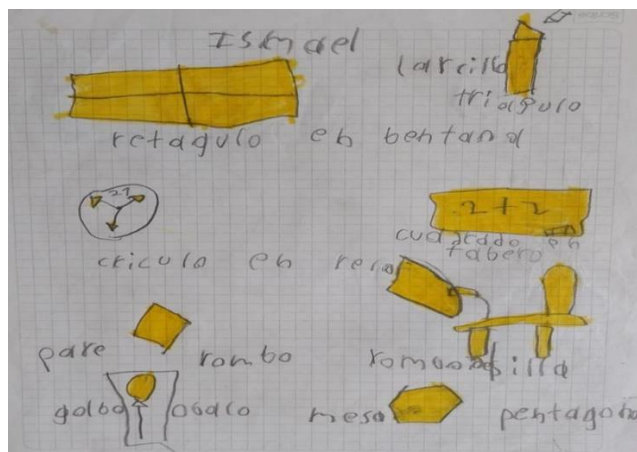 Ismael
larcillo
triagulo
retagulo en bentana
2+2
cuadrado en
tabero
criculo en relo
pare rombo
silla
golbo obalo
mesa pentagono